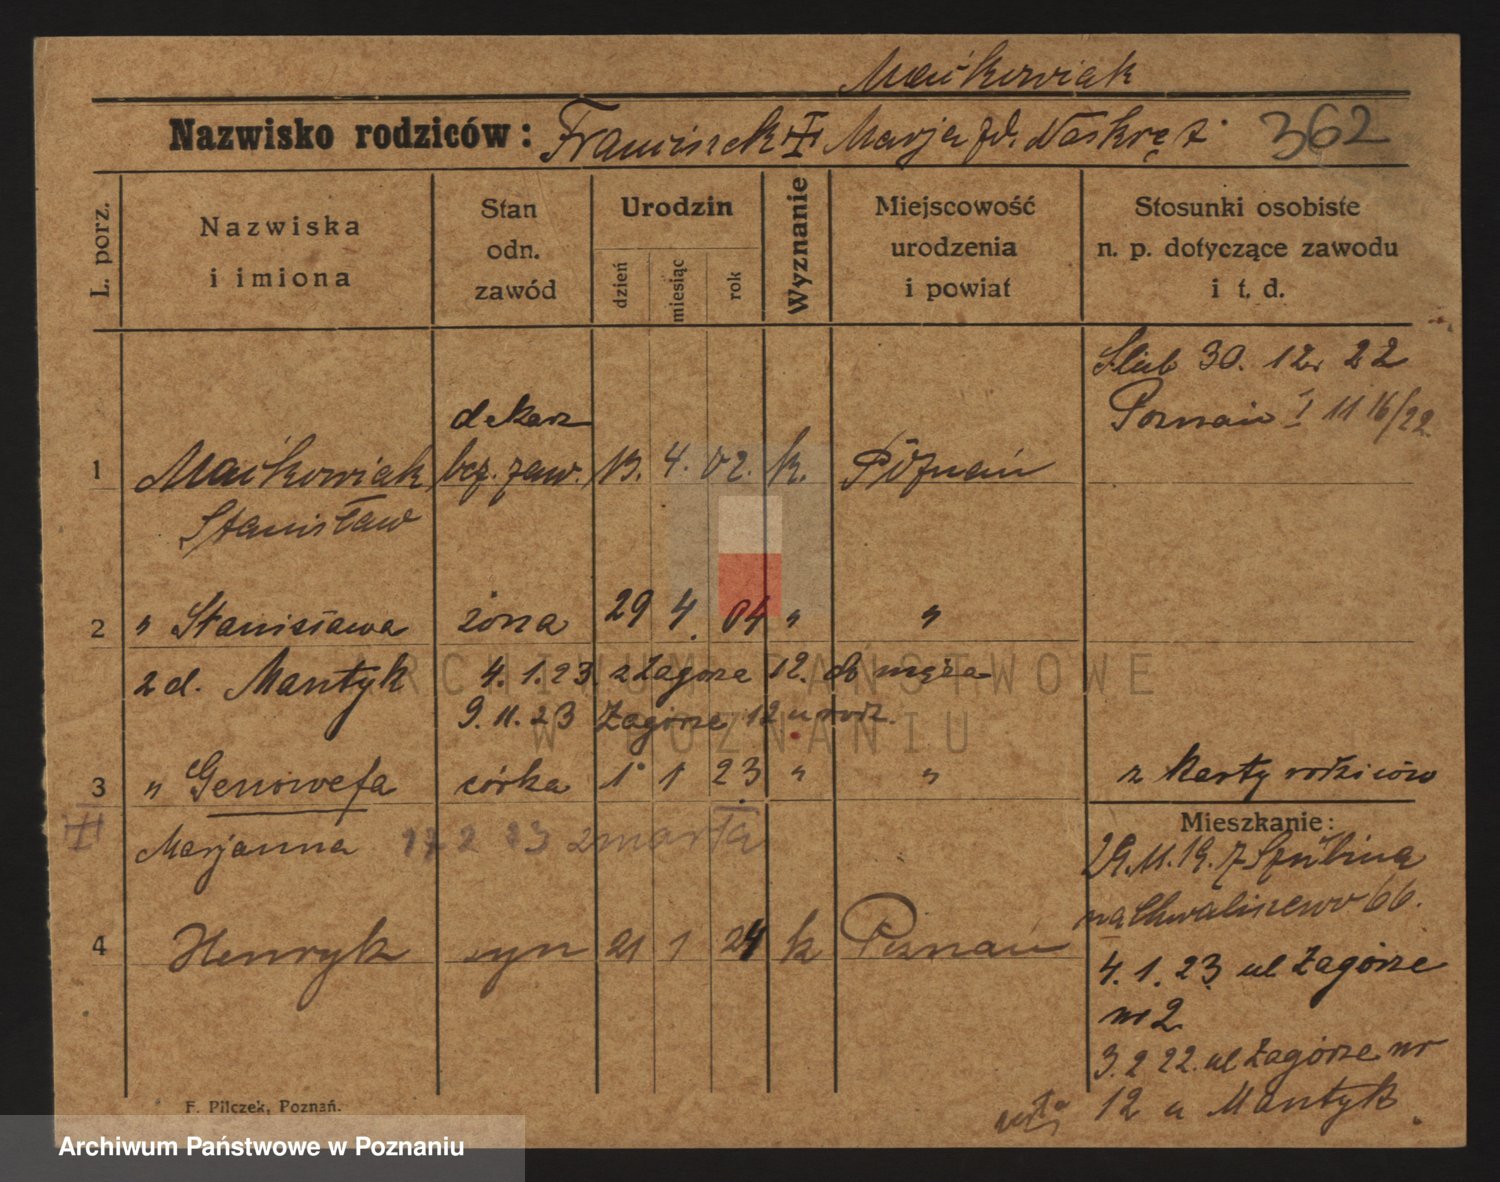 Maćkowiak
Nazwisko rodziców: Franciszek Marja zd. Naskręt 362
L. porz.
Nazwiska
i imiona
Stan
odn.
zawód
Urodzin
dzień
miesiąc
rok
Wyznanie
Miejscowość
urodzenia
i powiat
Stosunki osobiste
n. p. dotyczące zawodu
i t. d.
Ślub 30. 12. 22
Poznań I 1116/22
dekarz
1 Maćkowiak bez. zaw. 13. 4. 02. k. Poznań
Stanisław
2 " Stanisława żona 29 4. 04 " "
z d. Mantyk 4. 1. 23 z Zagórze 12. do męża
9. 11. 23 Zagórze 12 u rodz.
3 " Genowefa córka 1 1 23 " " z karty rodziców
Marjanna 17 2 23 zmarła
Mieszkanie:
29. 11. 19. z Szubina
na Chwaliszewo 66.
4 Henryk syn 21 1 24 k Poznań
4. 1. 23 ul Zagórze
nr 2
3. 2 22. ul Zagórze nr
12 u Mantyk.
F. Pilczek, Poznań.
ARCHIWUM PAŃSTWOWE
W POZNANIU
Archiwum Państwowe w Poznaniu